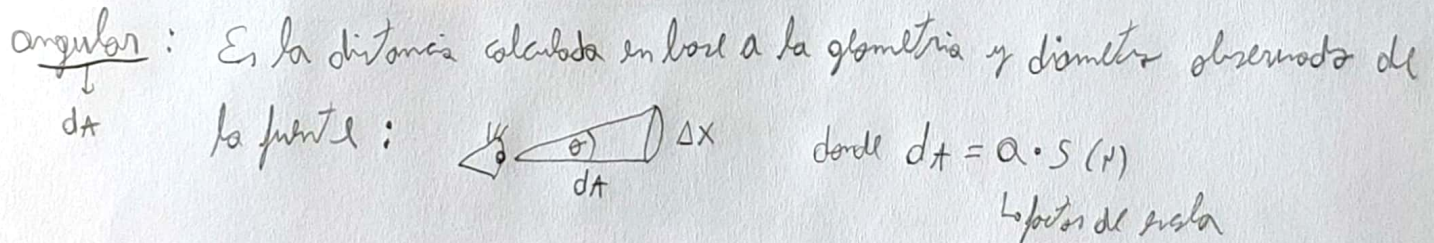 angular: Es la distancia calculada en base a la geometria y diametro observado de
dA la fuente: θ ΔX donde dA = a · S(r)
dA
↳ factor de escala